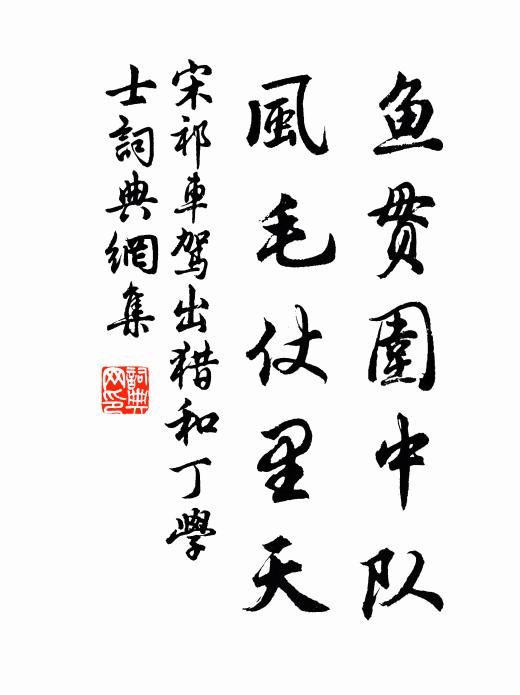 鱼贯圍中队
風毛仗里天
宋祁車駕出猎和丁學
士詞典網集
詞典网印